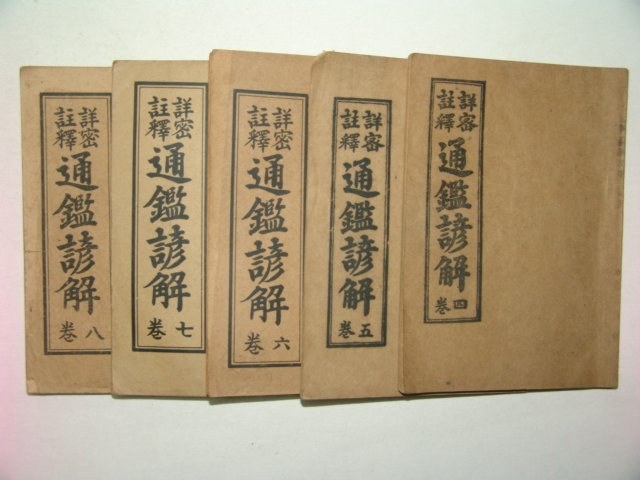 詳密註釋
通鑑諺解
卷八
詳密註釋
通鑑諺解
卷七
詳密註釋
通鑑諺解
卷六
詳審註釋
通鑑諺解
卷五
詳審註釋
通鑑諺解
卷四